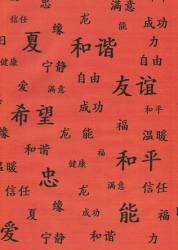 缘 龙 满意
成功
夏 和谐 力
健康 宁静 自由 自由
爱 满意 友谊
缘 成功 和平
希望 龙 能 福
信任 温暖
温暖 和谐 健康 力
忠 福 和平
信任 龙 满意 信任
夏 缘 能 成功
爱 宁静 力